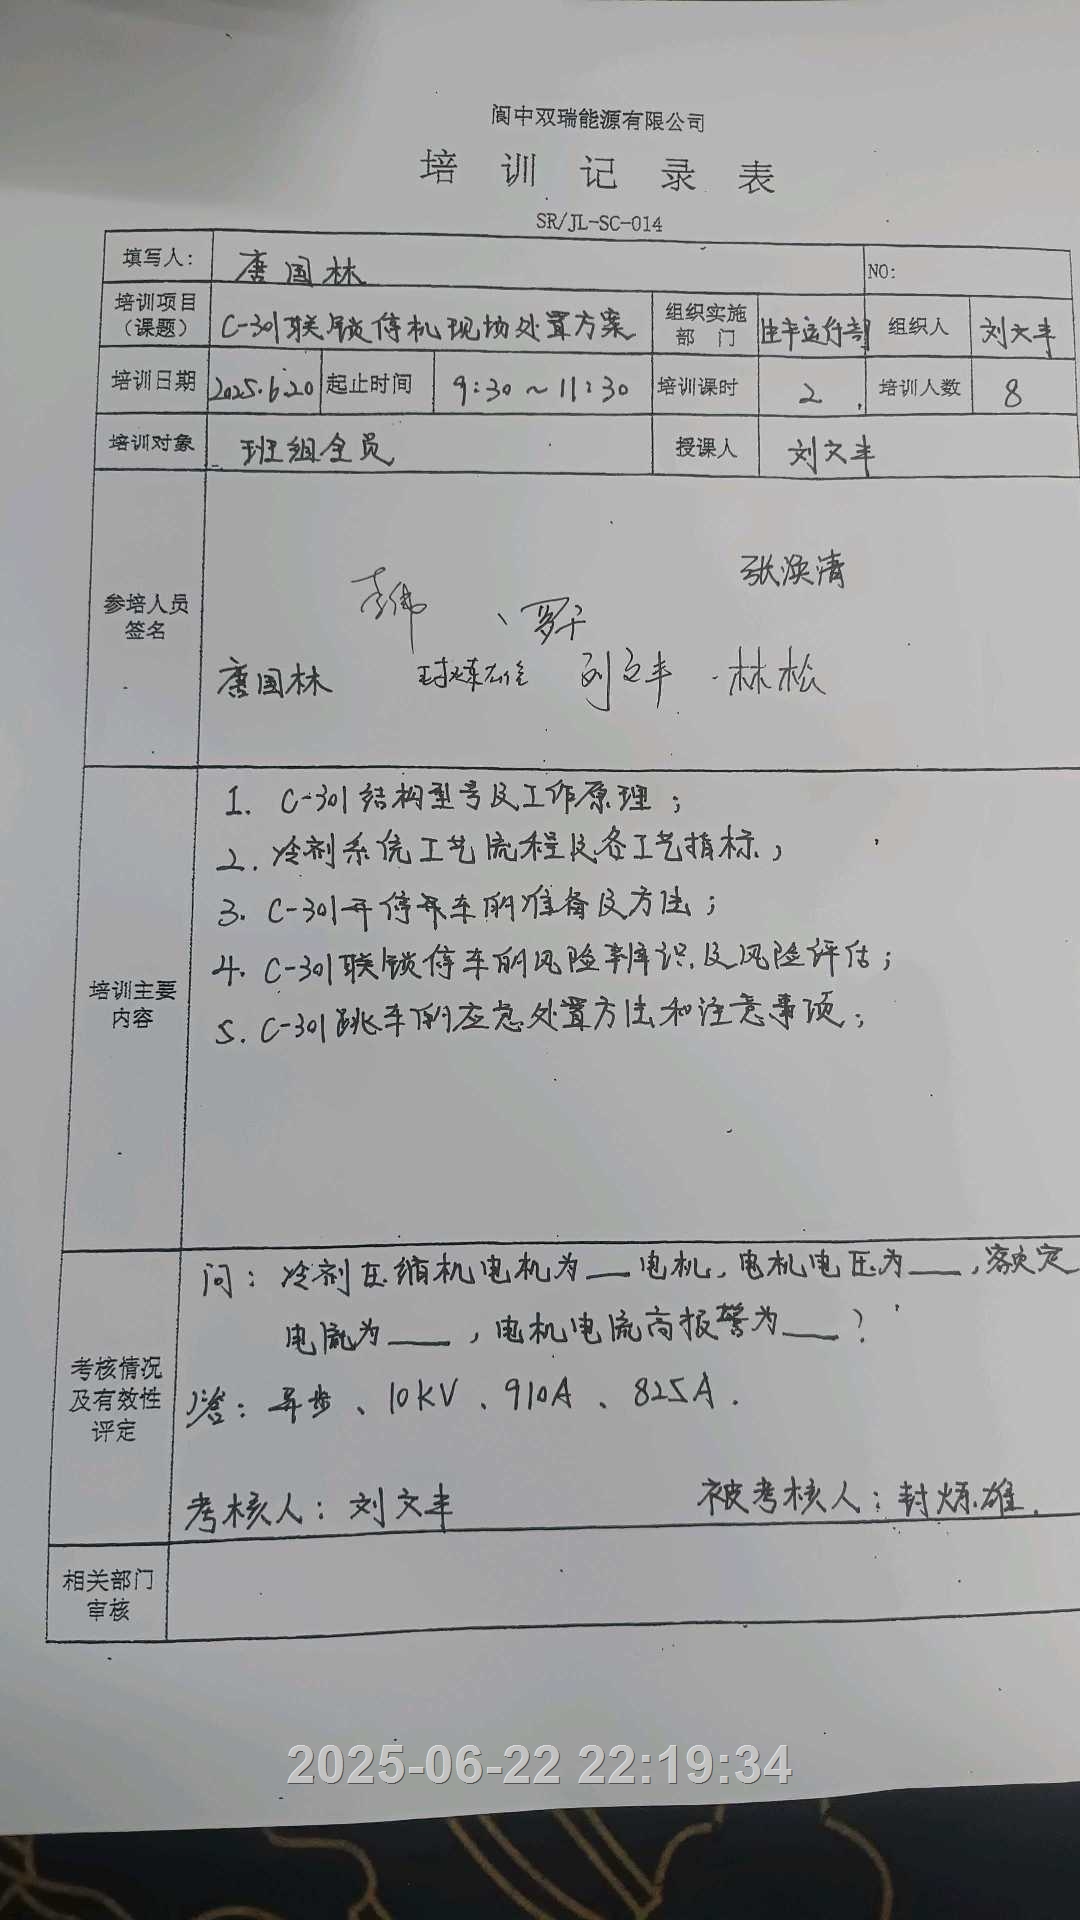 阆中双瑞能源有限公司
培训记录表
SR/JL-SC-014
填写人: 唐国林 NO:
培训项目(课题) C-301联锁停机现场处置方案 组织实施部门 生产运行部 组织人 刘文丰
培训日期 2025.6.20 起止时间 9:30~11:30 培训课时 2 培训人数 8
培训对象 班组全员 授课人 刘文丰
参培人员签名
李伟 罗干 张涣清
唐国林 封炼雄 刘文丰 林松
培训主要内容
1. C-301结构型号及工作原理；
2. 冷剂系统工艺流程及各工艺指标；
3. C-301开停车的准备及方法；
4. C-301联锁停车的风险辨识及风险评估；
5. C-301跳车的应急处置方法和注意事项；
考核情况及有效性评定
问：冷剂压缩机电机为___电机，电机电压为___，额定
电流为___，电机电流高报警为___？
答：异步、10kV、910A、825A.
考核人：刘文丰 被考核人：封炼雄.
相关部门审核
2025-06-22 22:19:34